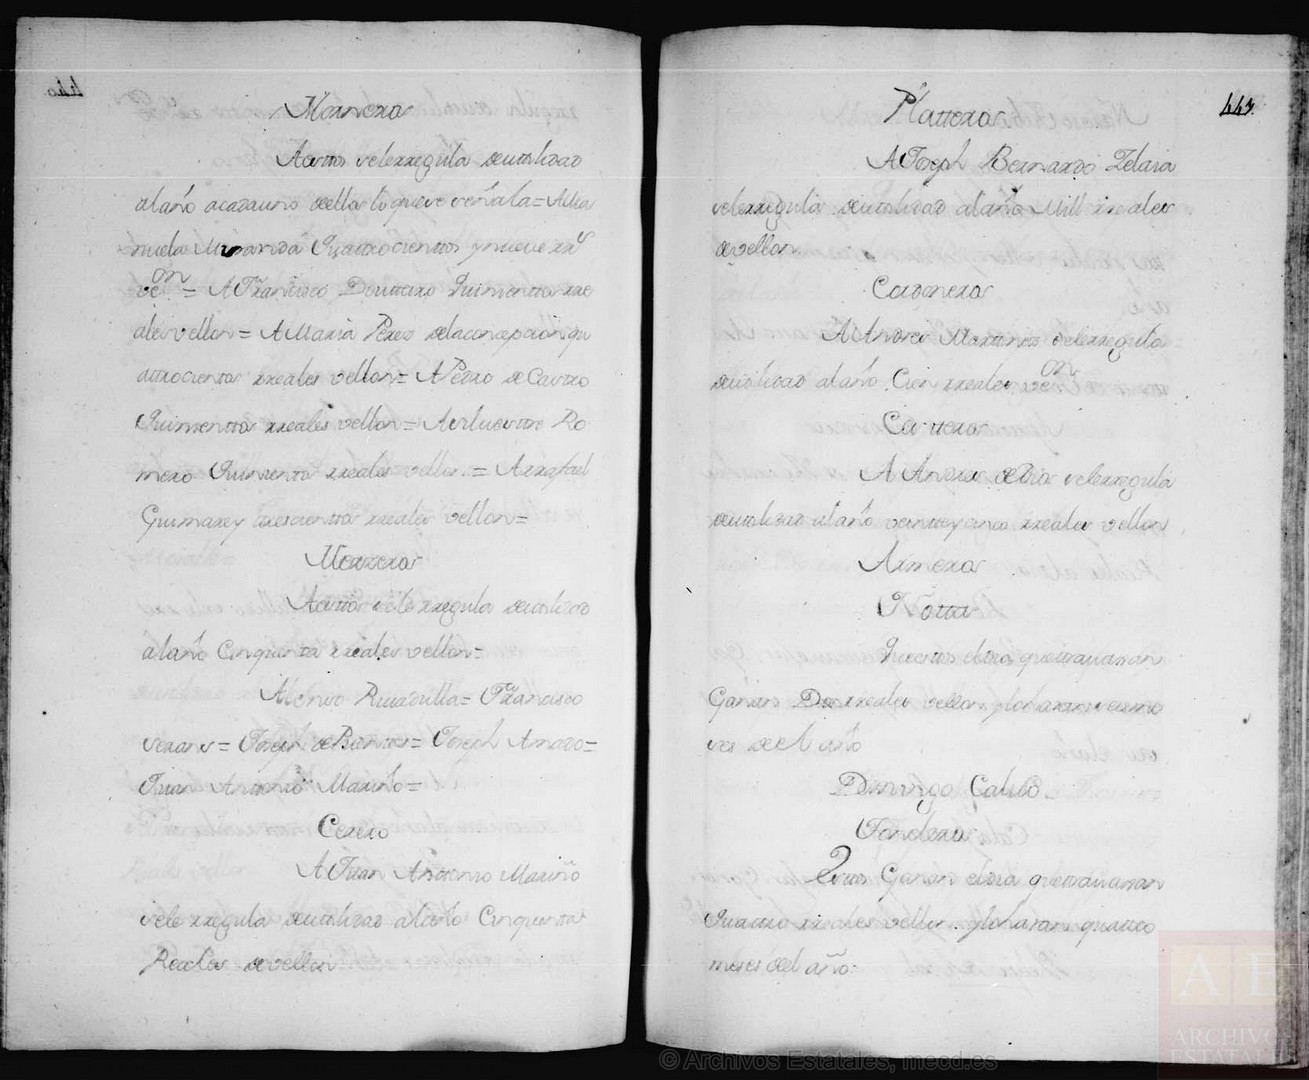 440
Mesoneros
A estos se les rregula de utilidad
al año a cada uno de ellos lo que se señala = A Ma
nuela Miranda Quattrocientos y nueve rr.s
v.on = A Francisco Doutteiro Quinientos rre
ales vellon = A Maria Perez de la concepcion qu
attrocientos rreales vellon = A Pedro de Castro
Quinientos rreales vellon = A silvestre Ro
mero Quinientos rreales vellon = A rrafael
Guimarey trescientos rreales vellon =
Merzeros
A estos se le rregula de utilidad
al año Cinquenta rreales vellon =
Francisco
= Joseph de Barros = Joseph Amado =
Juan Antonio Mariño =
Cerero
A Juan Antonio Mariño
se le rregula de utilidad al año Cinquenta
Reales de vellon
443.
Platteros
A Joseph Bernardo Zelaia
se le rregula de utilidad al año Mill rreales
de vellon
Cordoneros
A Andres Martinez se le rregula
de utilidad al año Cien rreales v.on
Cartteros
A Andres de Dios se le rregula
de utilidad al año veintte y cinco rreales vellon
Armeros
Notta
Que estos el dia que ttravaxan
Ganan Dos rreales vellon y lo haran seis me
ses de el año
Domingo Calvo
Tonderos
Estos Ganan el dia que ttravaxan
Quattro rreales vellon y lo haran quattro
meses del año
© Archivos Estatales, mecd.es
AE
ARCHIVOS
ESTATALES